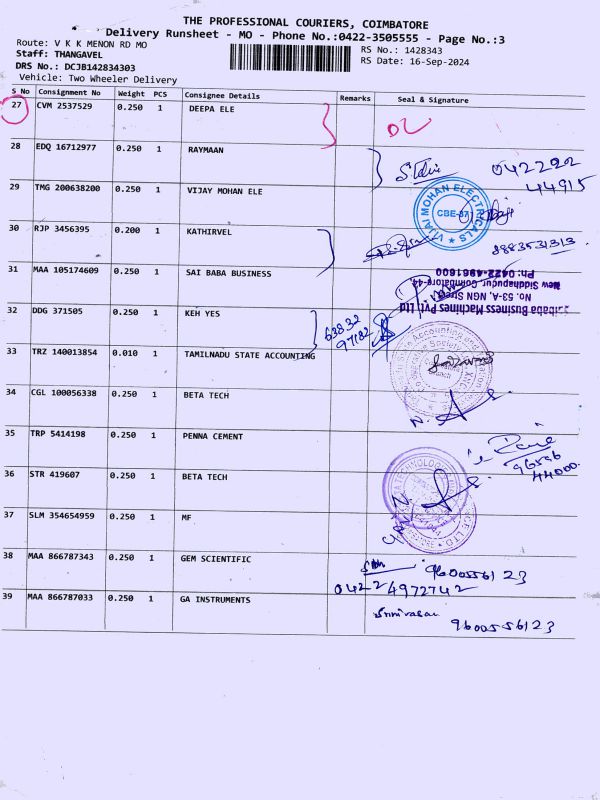 THE PROFESSIONAL COURIERS, COIMBATORE
Delivery Runsheet - MO - Phone No.:0422-3505555 - Page No.:3
Route: V K K MENON RD MO
RS No.: 1428343
Staff: THANGAVEL
RS Date: 16-Sep-2024
DRS No.: DCJB142834303
Vehicle: Two Wheeler Delivery
S No Consignment No Weight PCS Consignee Details Remarks Seal & Signature
27 CVM 2537529 0.250 1 DEEPA ELE
28 EDQ 16712977 0.250 1 RAYMAAN
042292
44915
29 TMG 200638200 0.250 1 VIJAY MOHAN ELE
VIJAI MOHAN ELECTRICALS
CBE-37
30 RJP 3456395 0.200 1 KATHIRVEL
9883531313
31 MAA 105174609 0.250 1 SAI BABA BUSINESS
Saibaba Business Machines Pvt Ltd
No. 53-A, NGN Street
New Siddhapudur, Coimbatore-44
Ph: 0422-4961600
32 DDG 371505 KEH YES
63832
97182
33 TRZ 140013854 0.010 1 TAMILNADU STATE ACCOUNTING
34 CGL 100056338 0.250 1 BETA TECH
35 TRP 5414198 0.250 1 PENNA CEMENT
96596
44000
36 STR 419607 0.250 1 BETA TECH
37 SLM 354654959 0.250 1 MF
38 MAA 866787343 0.250 1 GEM SCIENTIFIC
9600556123
0422 4972742
39 MAA 866787033 0.250 1 GA INSTRUMENTS
Srinivasan
9600556123